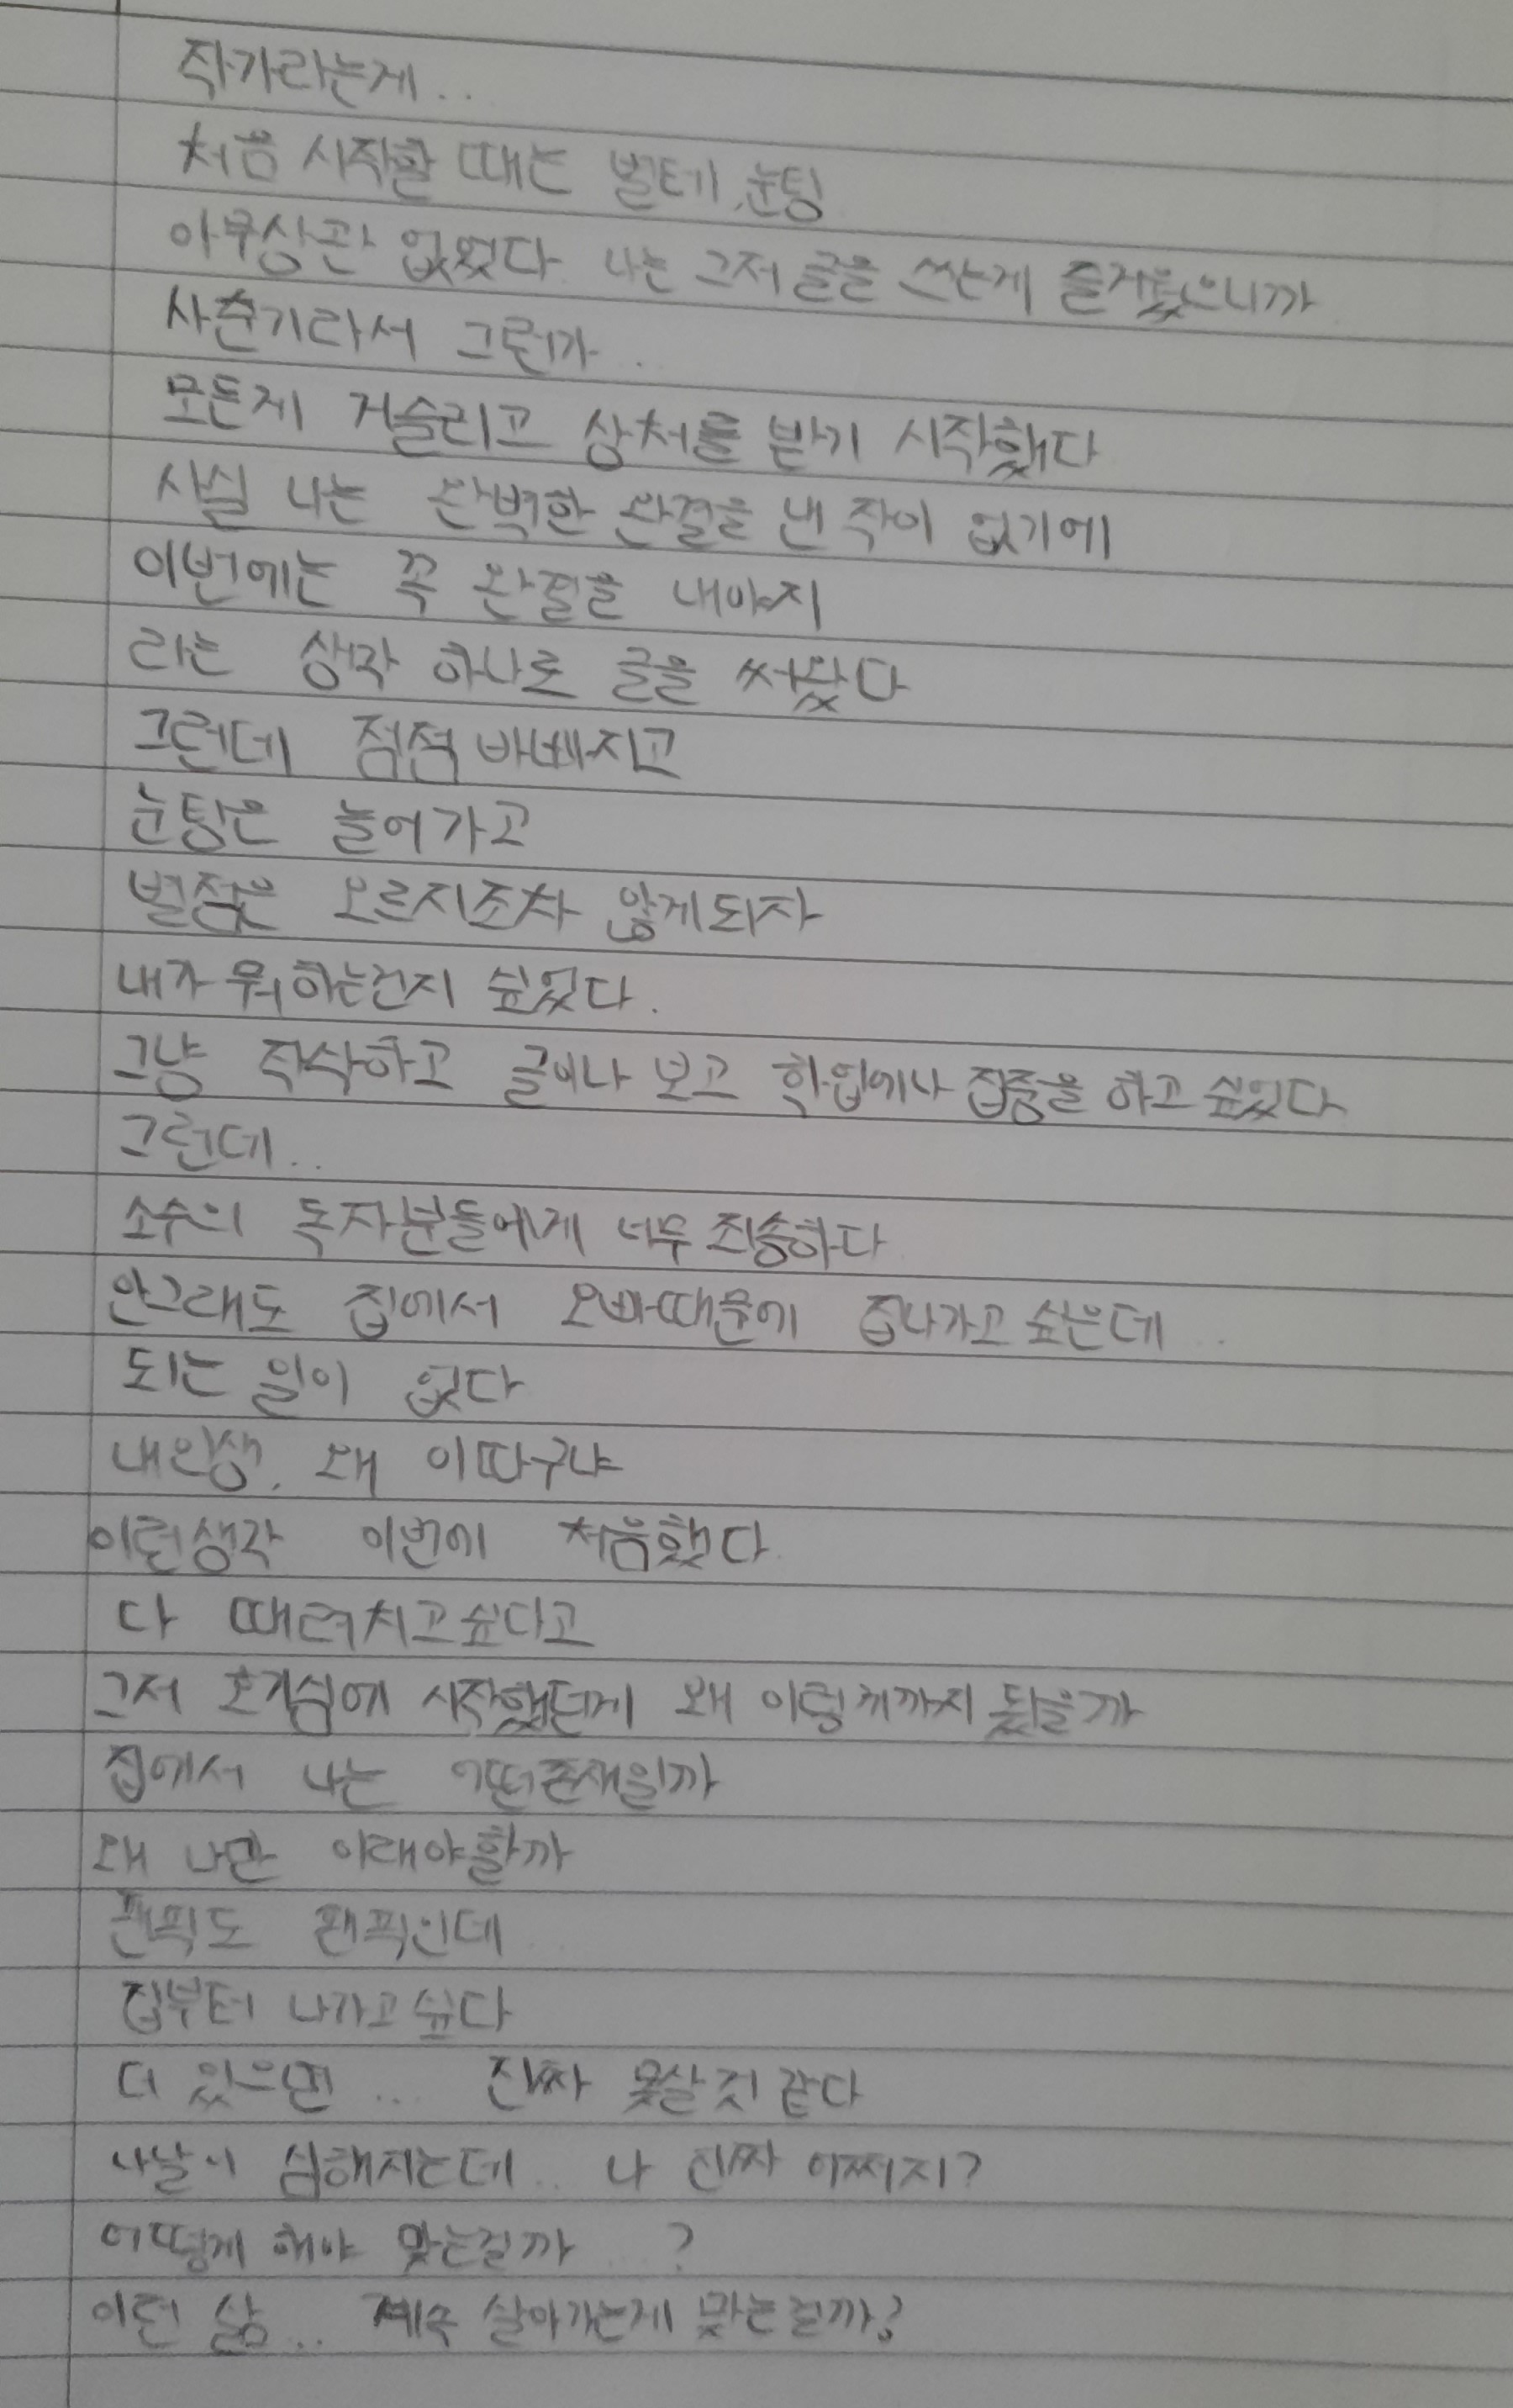 작가라는게..
처음 시작할 때는 별테,눈팅
아무상관 없었다. 나는 그저 글을 쓰는게 즐거웠으니까
사춘기라서 그런가..
모든게 거슬리고 상처를 받기 시작했다
사실 나는 완벽한 완결을 낸 작이 없기에
이번에는 꼭 완결을 내야지
라는 생각 하나로 글을 써왔다
그런데 점점 바빠지고
눈팅은 늘어가고
별점은 오르지조차 않게되자
내가 뭐하는건지 싶었다.
그냥 작삭하고 글이나 보고 학업에나 집중을 하고 싶었다
그런데..
소수의 독자분들에게 너무 죄송하다
안그래도 집에서 오빠때문에 집나가고 싶은데..
되는 일이 없다
내인생. 왜 이따구냐
이런생각 이번에 처음했다
다 때려치고싶다고
그저 호기심에 시작했던게 왜 이렇게까지 됐을까
집에서 나는 어떤존재일까
왜 나만 이래야할까
팬픽도 팬픽인데
집부터 나가고싶다
더 있으면... 진짜 못살것 같다
나날이 심해지는데.. 나 진짜 어쩌지?
어떻게 해야 맞는걸까..?
이런 삶.. 계속 살아가는게 맞는걸까?